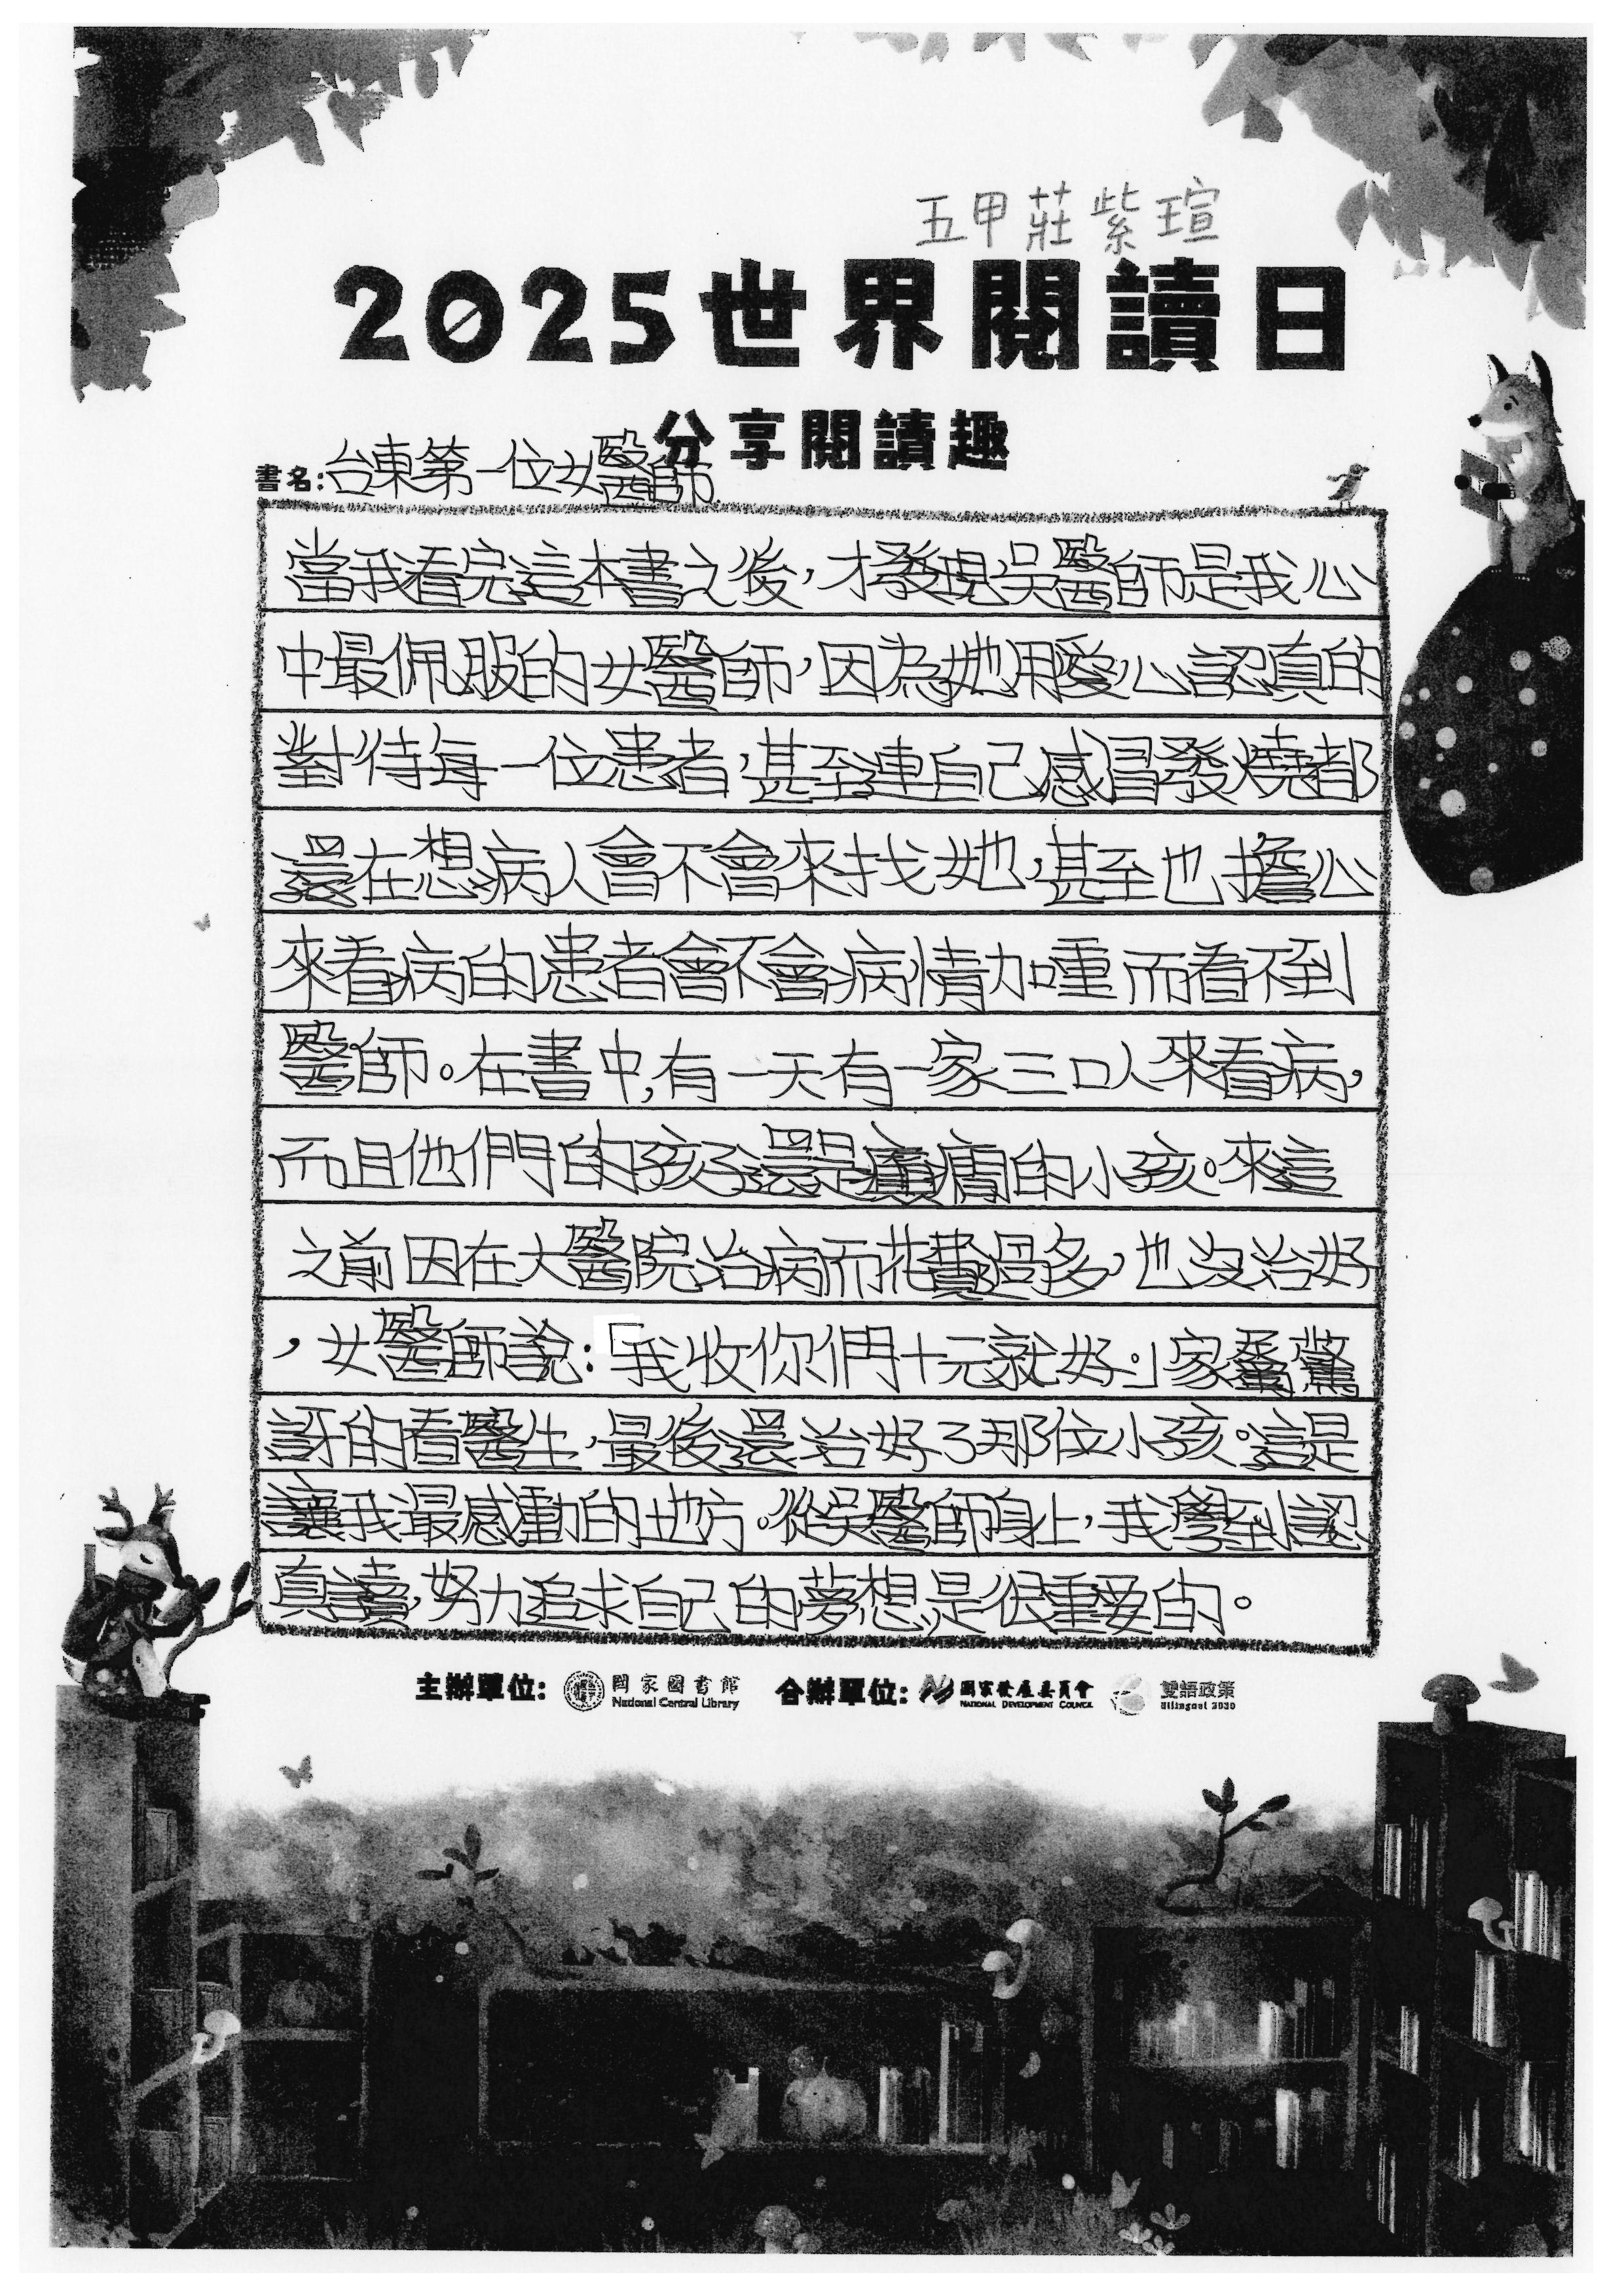 五甲莊紫瑄
2025世界閱讀日
分享閱讀趣
書名:台東第一位女醫師
當我看完這本書之後，才發現吳醫師是我心
中最佩服的女醫師，因為她用愛心認真的
對待每一位患者，甚至連自己感冒發燒都
還在想病人會不會來找她，甚至也擔心
來看病的患者會不會病情加重而看不到
醫師。在書中，有一天有一家三口人來看病，
而且他們的孩子還是的小孩。來這
之前因在大醫院治病而花費過多，也沒治好
，女醫師說：「我收你們十元就好。」家驚
訝的看醫生，最後還治好了那位小孩。這是
讓我最感動的地方。從吳醫師身上，我學到認
真讀，努力追求自己的夢想，是很重要的。
主辦單位: 國家圖書館 National Central Library 合辦單位: 國家發展委員會 NATIONAL DEVELOPMENT COUNCIL 雙語政策 Bilingual 2030